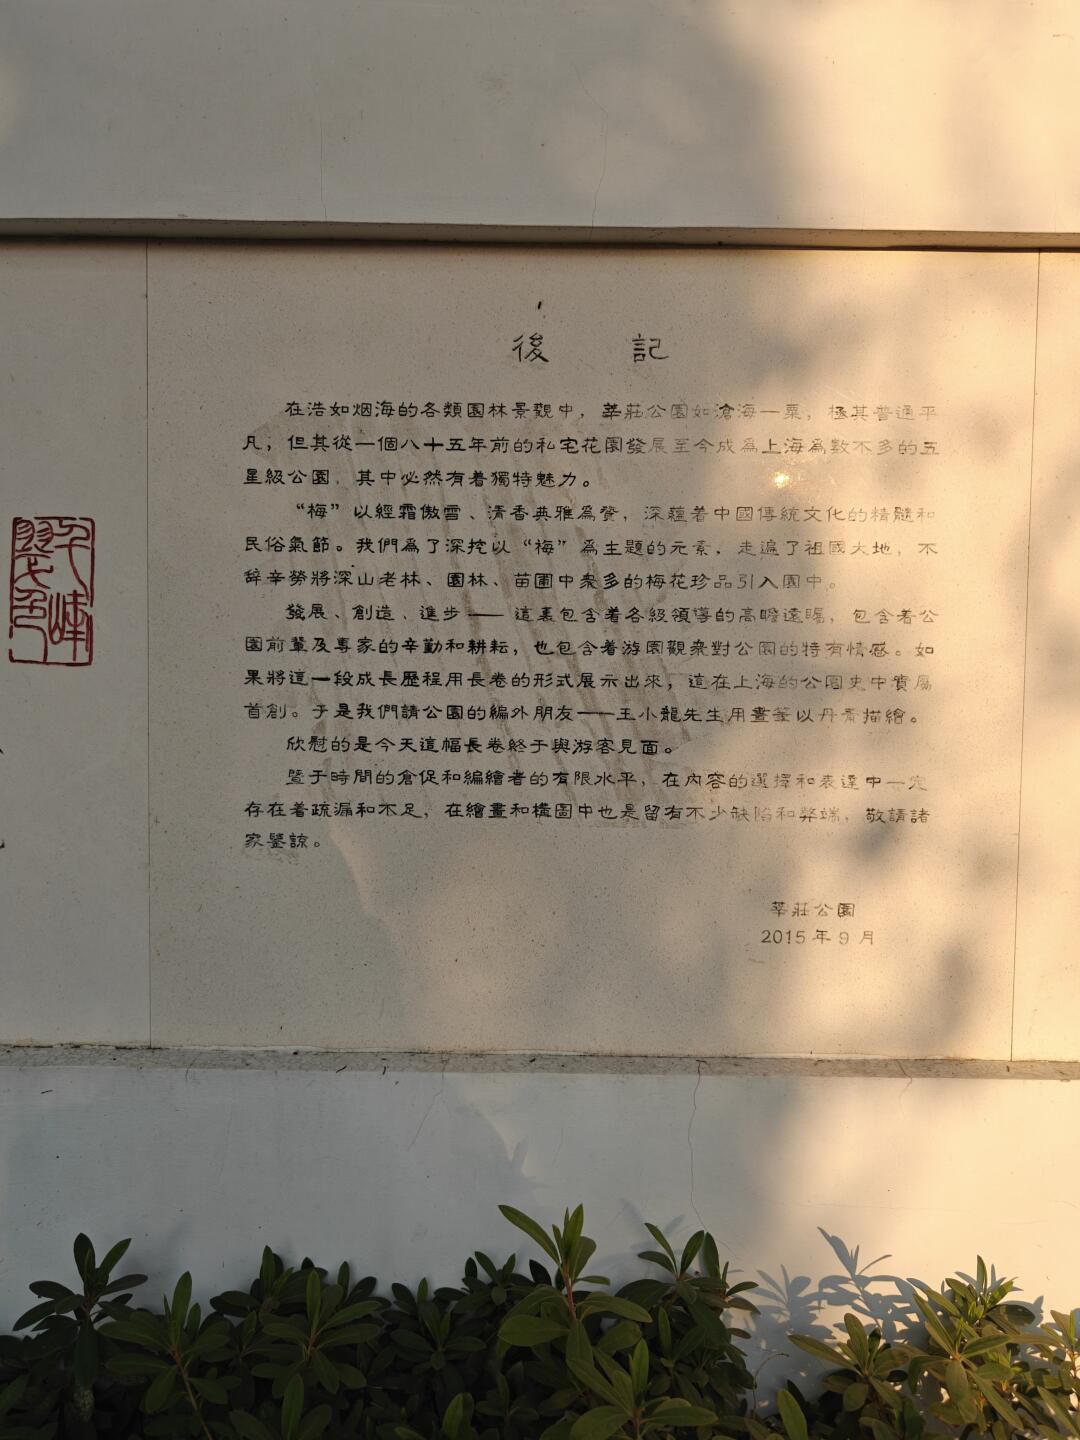 後 記
在浩如烟海的各類園林景觀中，莘莊公園如滄海一粟，極其普通平
凡；但其從一個八十五年前的私宅花園發展至今成爲上海爲數不多的五
星級公園，其中必然有着獨特魅力。
“梅”以經霜傲雪、清香典雅爲贊，深蘊着中國傳統文化的精髓和
民俗氣節。我們爲了深挖以“梅”爲主題的元素，走遍了祖國大地，不
辭辛勞將深山老林、園林、苗圃中衆多的梅花珍品引入園中。
發展、創造、進步—— 這裏包含着各級領導的高瞻遠矚，包含着公
園前輩及專家的辛勤和耕耘，也包含着游園觀衆對公園的特有情感。如
果將這一段成長歷程用長卷的形式展示出來，這在上海的公園史中實屬
首創。于是我們請公園的編外朋友——王小龍先生用畫筆以丹青描繪。
欣慰的是今天這幅長卷終于與游客見面。
暨于時間的倉促和編繪者的有限水平，在内容的選擇和表達中一定
存在着疏漏和不足，在繪畫和構圖中也是留有不少缺陷和弊端，敬請諸
家鑒諒。
莘莊公園
2015 年 9 月